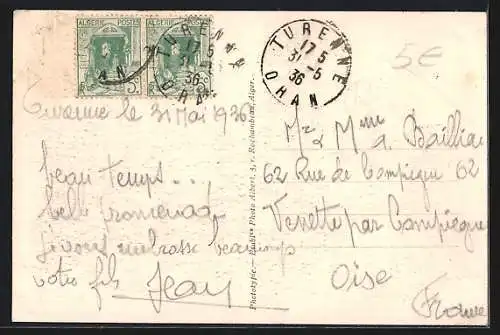 ALGERIE POSTES
ALGERIE POSTES
TURENNE
17 5
31-5
36
ORAN
TURENNE
17 5
31-5
36
ORAN
5€
Turenne le 31 Mai 1936
Mr & Mme Bailliau
62 Rue de Compiègne 62
Venette par Compiègne
Oise
France
Beau temps...
belle promenade
je vous embrasse beaucoup
votre fils Jean
Phototypie. — Etablts Photo Albert, 3, r. Rochambeau, Alger.